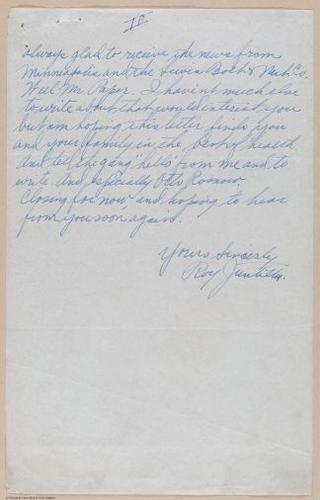 II
always glad to receive the news from
Minneapolis and the Lewis Bolt & Nut Co.
Well Mr. Paper. I havent much else
to write about that would interest you
but am hoping this letter finds you
and your family in the best of health.
And tell the gang "hello" from me and to
write. And especially Otto Rosnow.
Closing for now, and hoping to hear
from you soon again.
Yours Sincerly
Roy